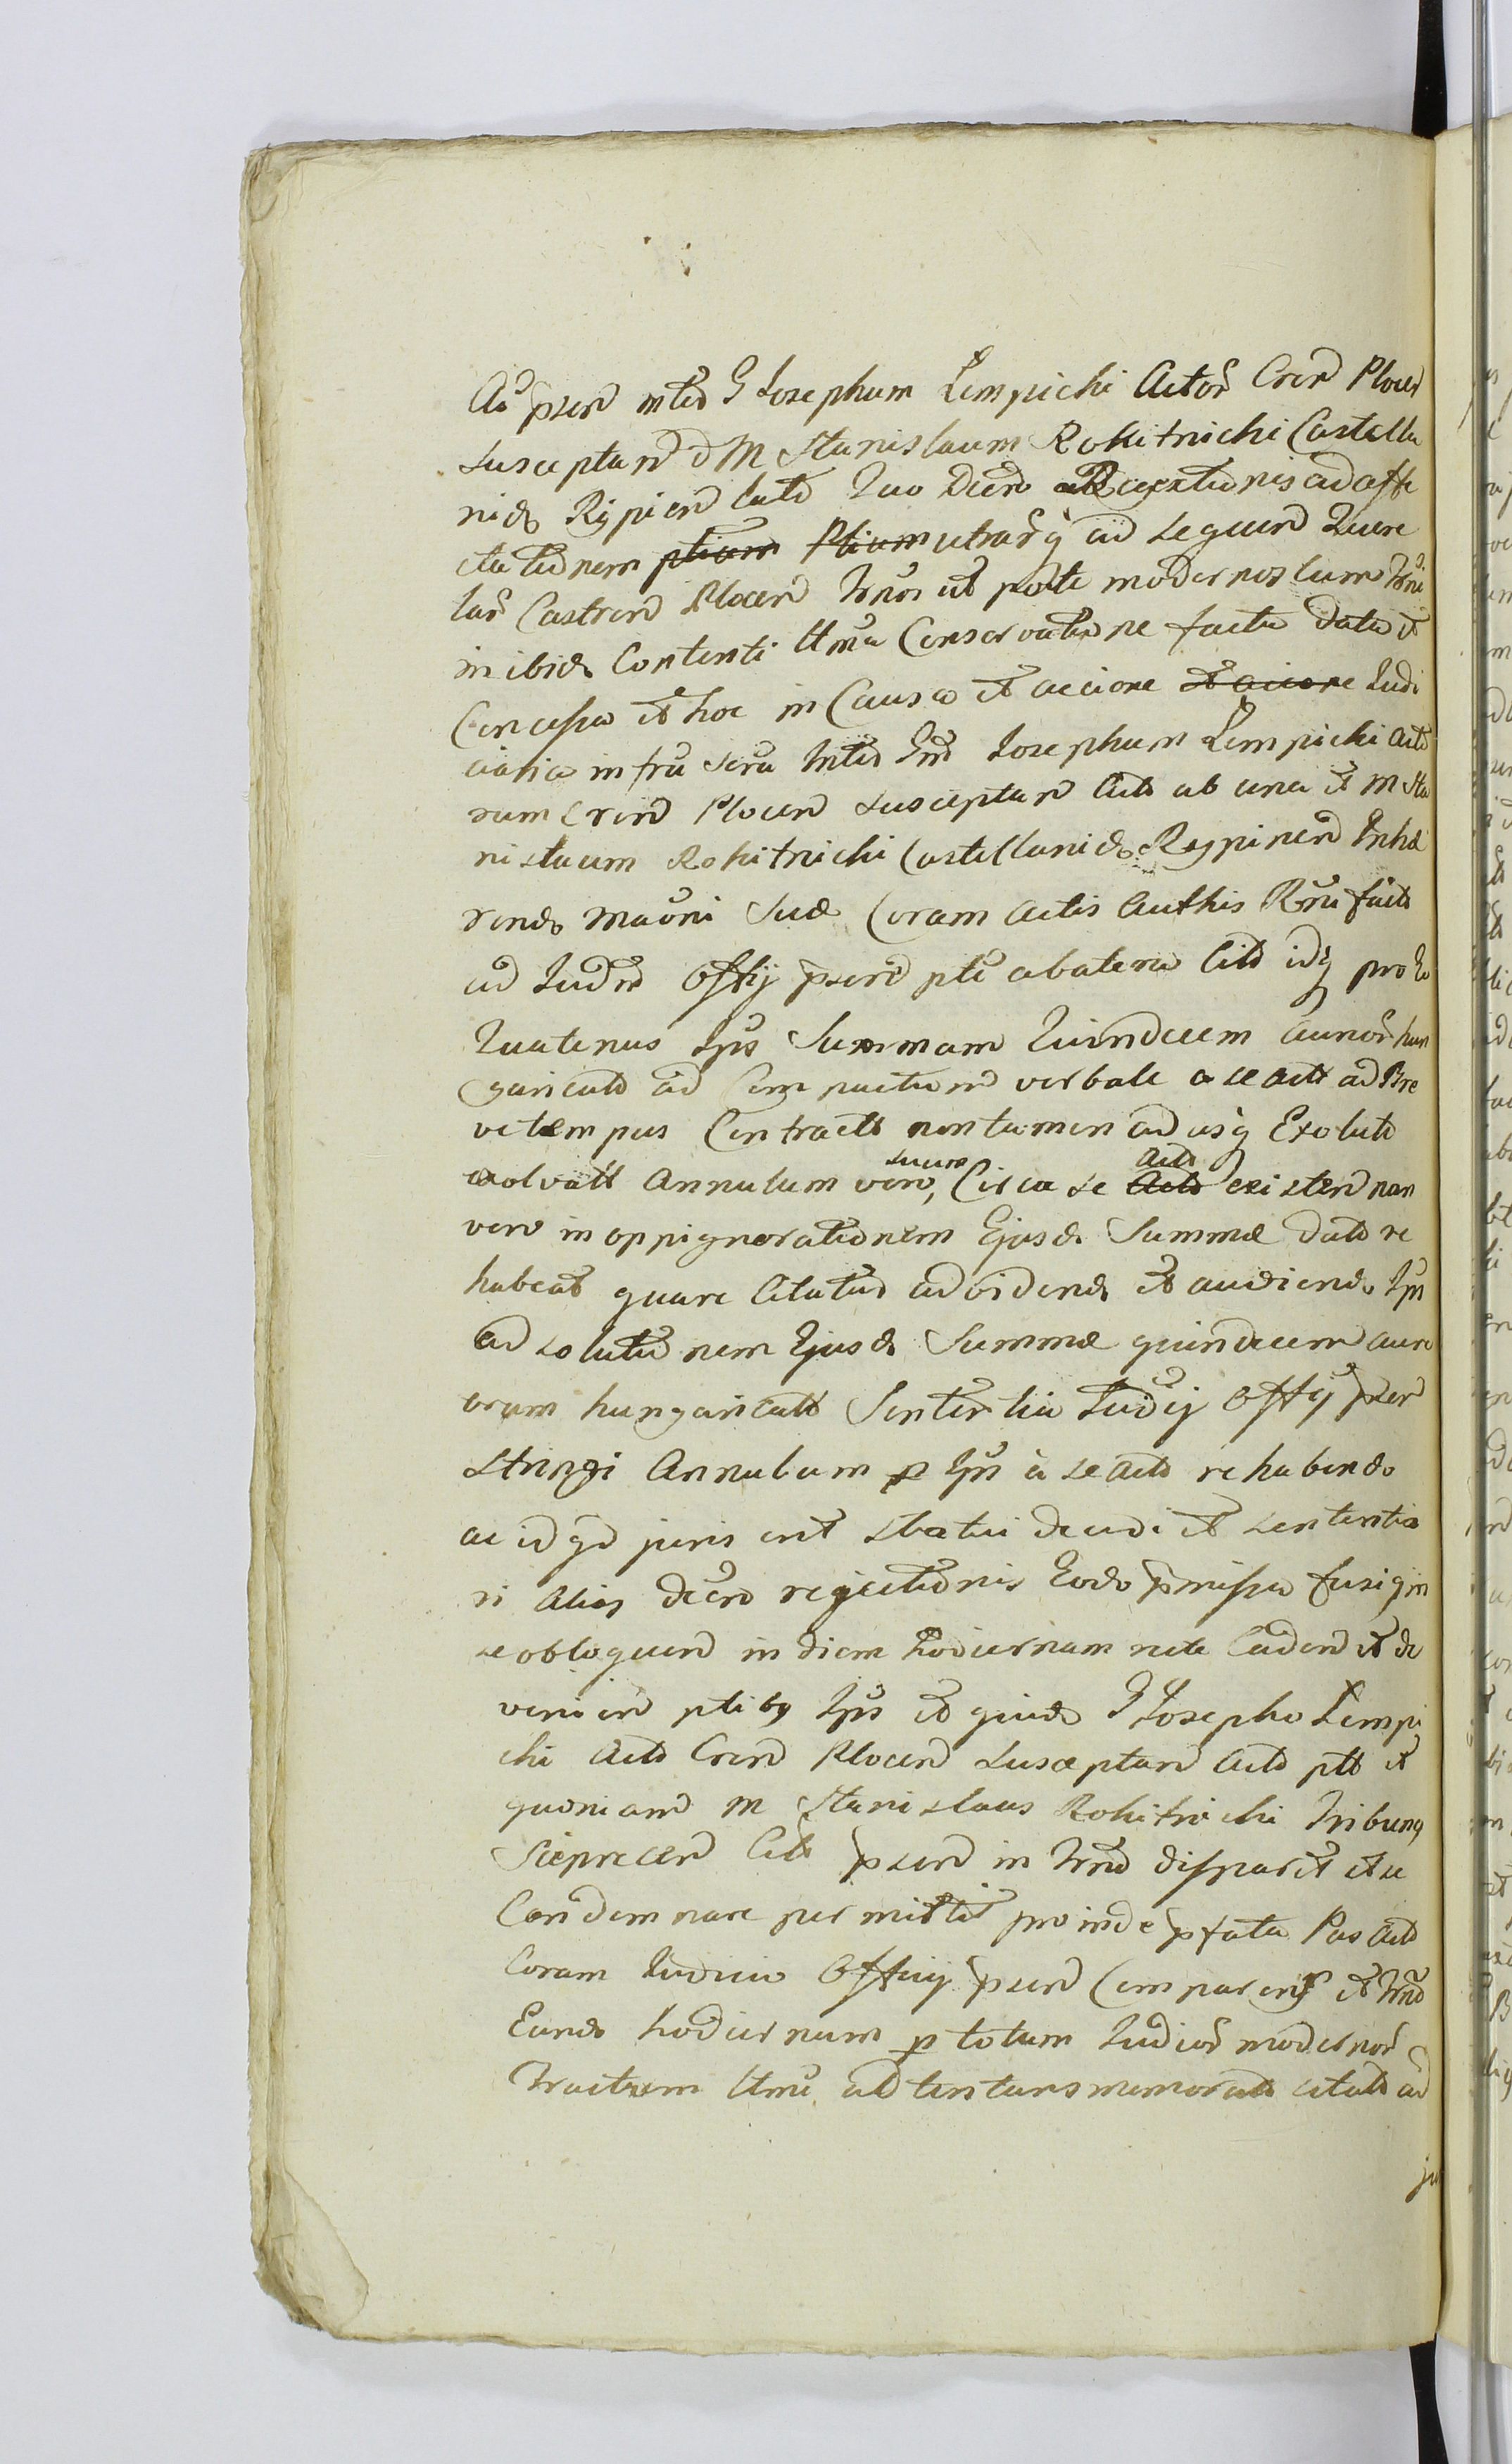 Ao psen inter G Josephum Lempicki Actor Cren Plocen
Susceptan d M Stanislaum Rokitnicki Castella
nid Rypien Cato Quo Decro Rejectionis ad affe
ctationem ptium Ptium utrarq ad sequen Quere
lar Castren Plocen Trnos ut pote modernos cum Trni
inibid Contenti Unica Conservatione facta data et
Concessa et hoc in Causa et accione et acione Judi
ciaria infra scra Inter Gnd Josephum Lempicki acto
rum Cren Plocen Susceptan Acto ab una et M Sta
nislaum Rokitnicki Castellanid Rypinen Inhæ
rend Maoni Suæ Coram actis Authis Rnu facto
ad Judm Offij psen pte ab altera Cito idq pro eo
Quatenus Ips Summam Quindecem aureor hun
garicalo ad Compactum verbale a se acto ad Bre
ve tempus Contracto non tamen ad usq Exoluto
exolvatt Annulum vero, suum Circa se Acto acto existen non
vero in oppignorationem Ejusd Summæ dato re
habeat quare Citatus ad vidend et audiend Ips
ad solutionem Ejusd Summæ quindecem aure
orum hungaricalt Sententia Judij Offij psen
stringi Annulum p Ips à se acto rehabendo
ac id qd juris erit statui decidi et sententia
ri alias decro rejectionis Eodo pmissa fusiq in
se obloquen in diem hodiernam rite Caden et de
venien ptibq Ips et quid G Josepho Lempi
cki Acto Cren Plocen Susceptan Acto ptt et
quoniam M Stanislaus Rokitnicki Tribunq
Sieprecen Cito psen in Trno disparet et se
Condemnare permittit proinde pfata Pas Acto
Coram Judicio Officij psen Comparens et Trno
Eund hodiernum p totum Judicior modernor
Tractum Unu attentans memorato citato ad
ju